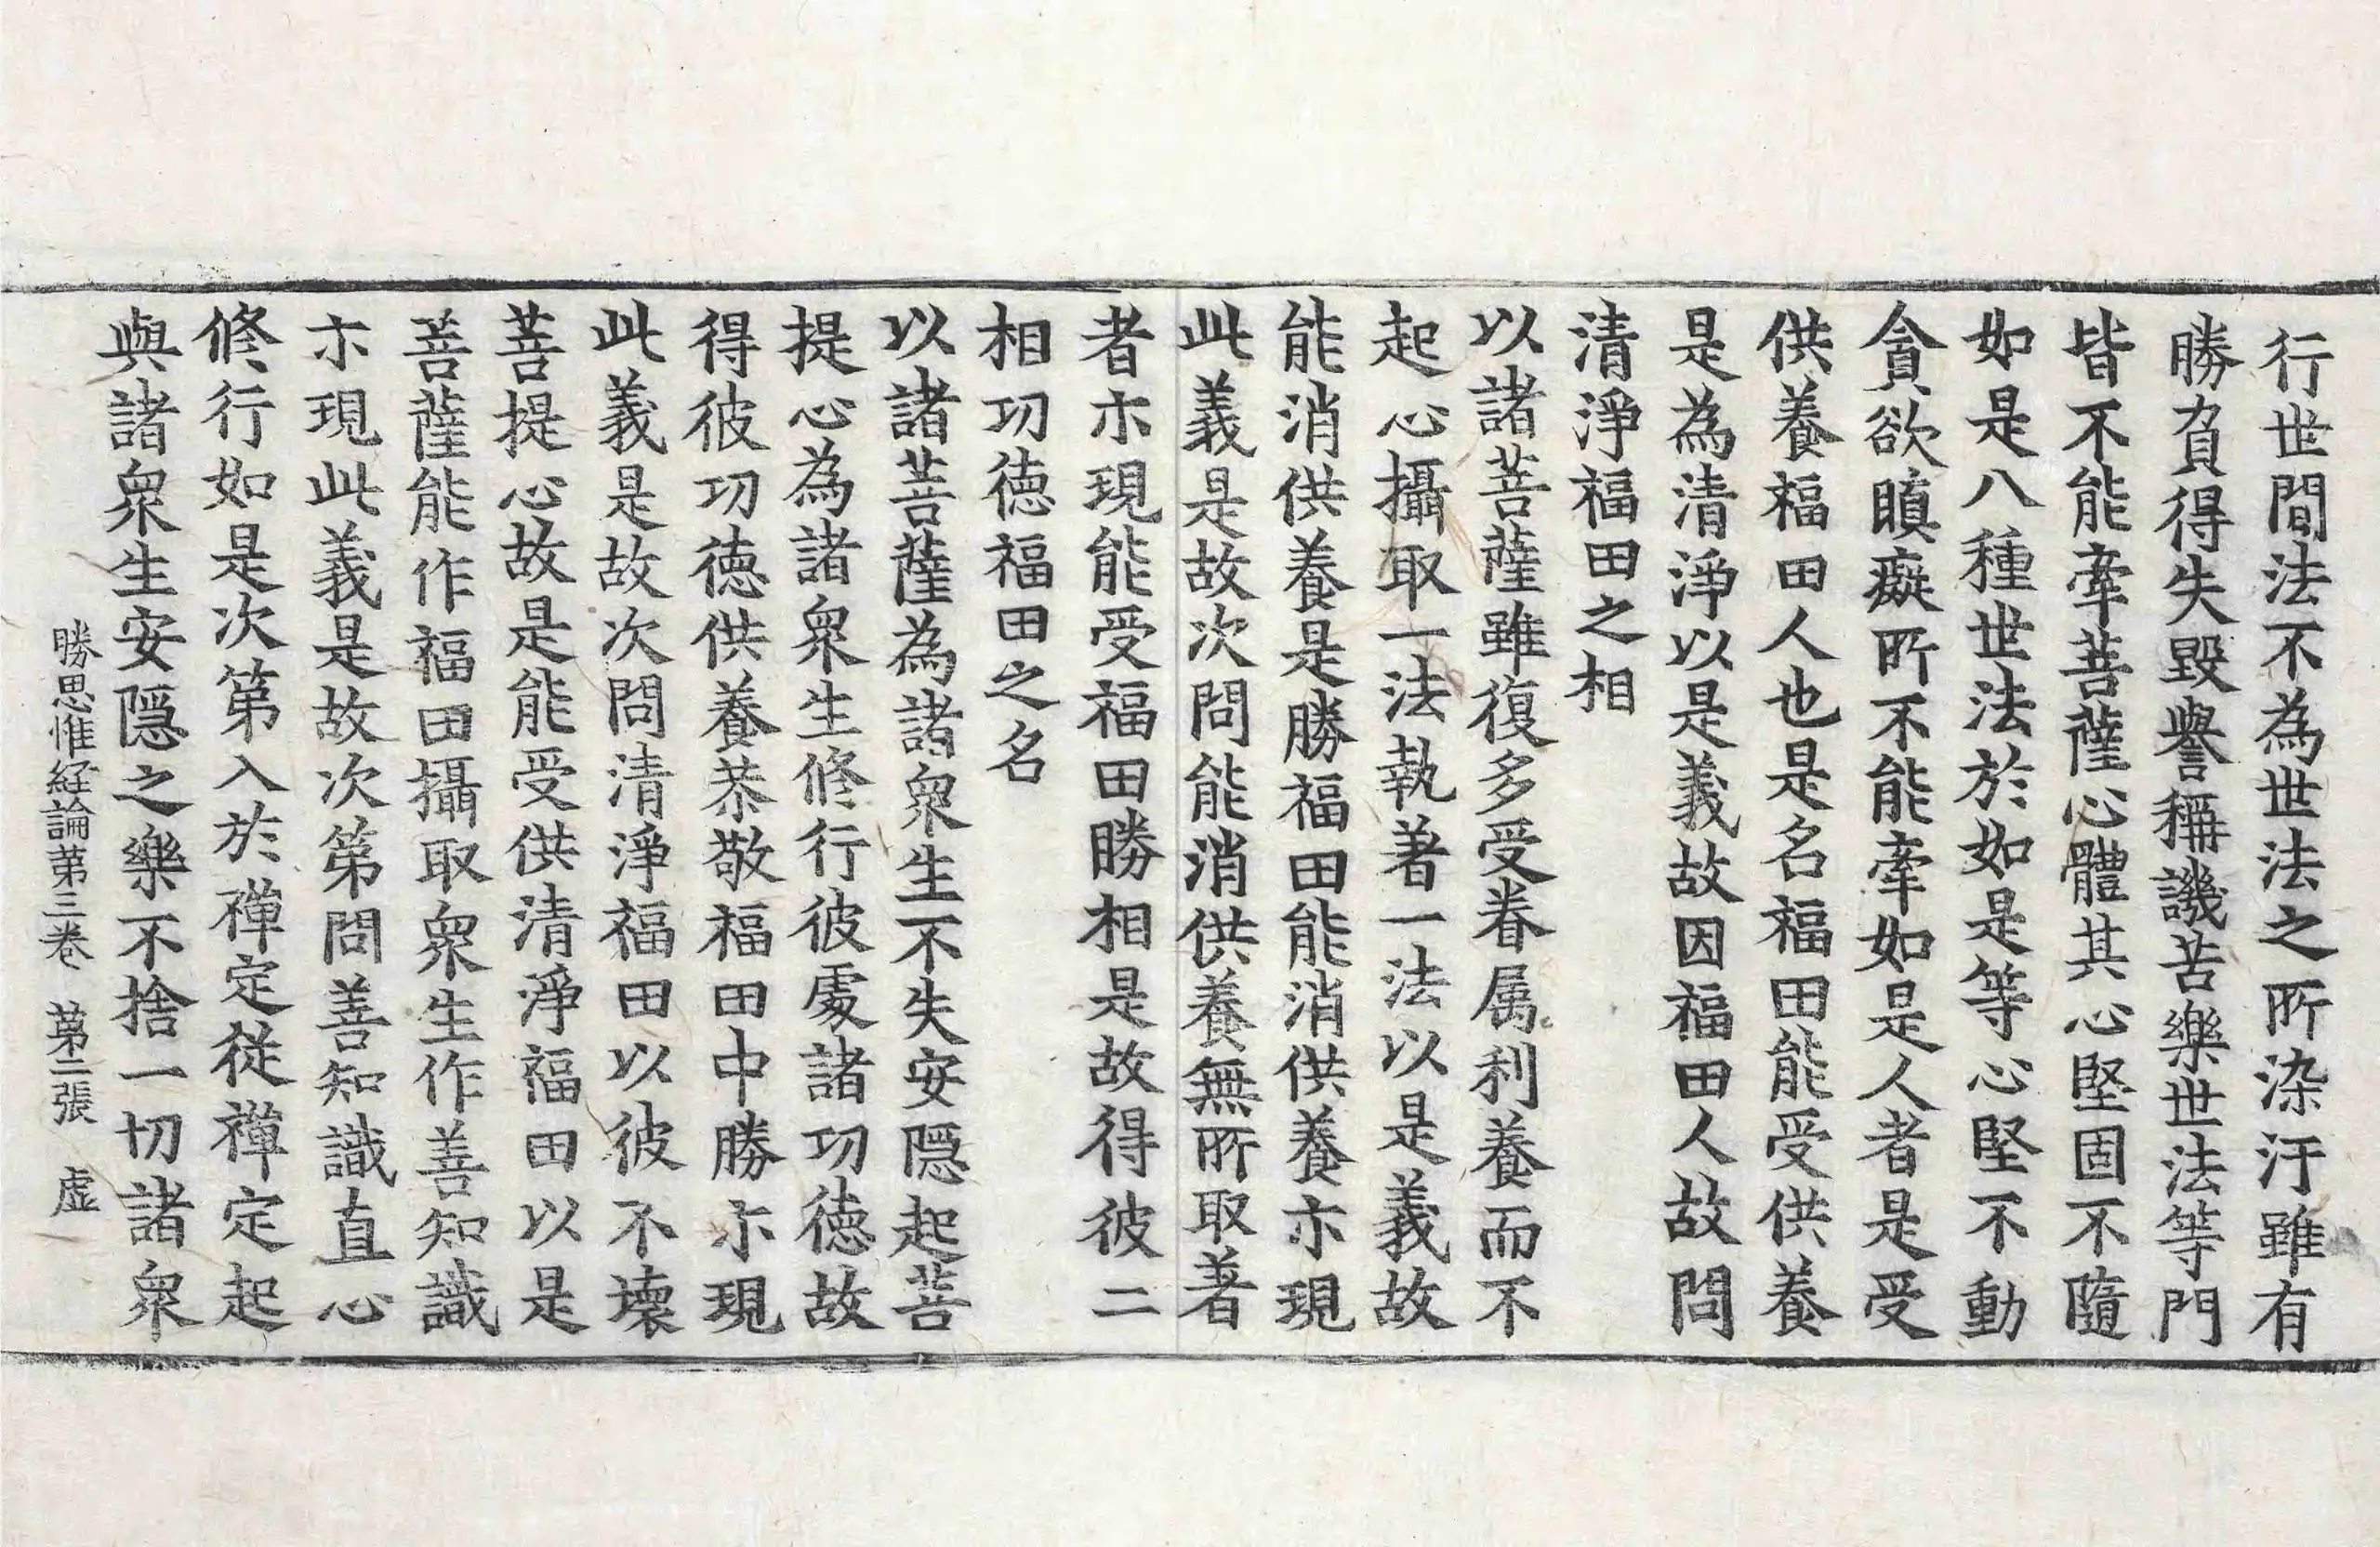 行世間法不為世法之所染汙雖有
勝負得失毀譽稱譏苦樂世法等門
皆不能牽菩薩心體其心堅固不隨
如是八種世法於如是等心堅不動
貪欲瞋癡所不能牽如是人者是受
供養福田人也是名福田能受供養
是為清淨以是義故因福田人故問
清淨福田之相
以諸菩薩雖復多受眷属利養而不
起心攝取一法執著一法以是義故
能消供養是勝福田能消供養亦現
此義是故次問能消供養無所取著
者亦現能受福田勝相是故得彼二
相功德福田之名
以諸菩薩為諸衆生不失安隱起菩
提心為諸衆生修行彼處諸功德故
得彼功德供養恭敬福田中勝亦現
此義是故次問清淨福田以彼不壞
菩提心故是能受供清淨福田以是
菩薩能作福田攝取衆生作善知識
亦現此義是故次第問善知識直心
修行如是次第入於禪定從禪定起
與諸衆生安隱之樂不捨一切諸衆
勝思惟経論第三卷 第二張 虛